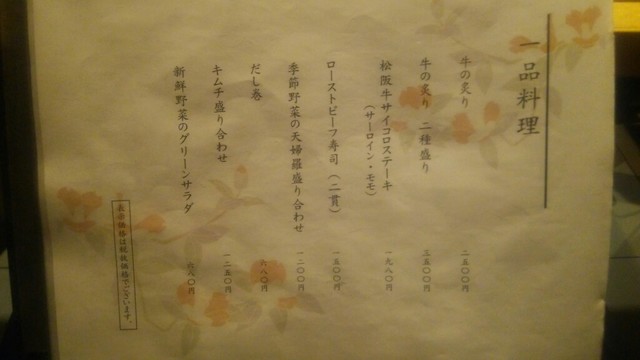 一品料理
牛の炙り 二五〇〇円
牛の炙り 二種盛り 三五〇〇円
松阪牛サイコロステーキ 一九八〇円
(サーロイン・モモ)
ローストビーフ寿司(二貫) 一五〇〇円
季節野菜の天婦羅盛り合わせ 一二〇〇円
だし巻 六八〇円
キムチ盛り合わせ 一二五〇円
新鮮野菜のグリーンサラダ 六八〇円
表示価格は税抜価格でございます。